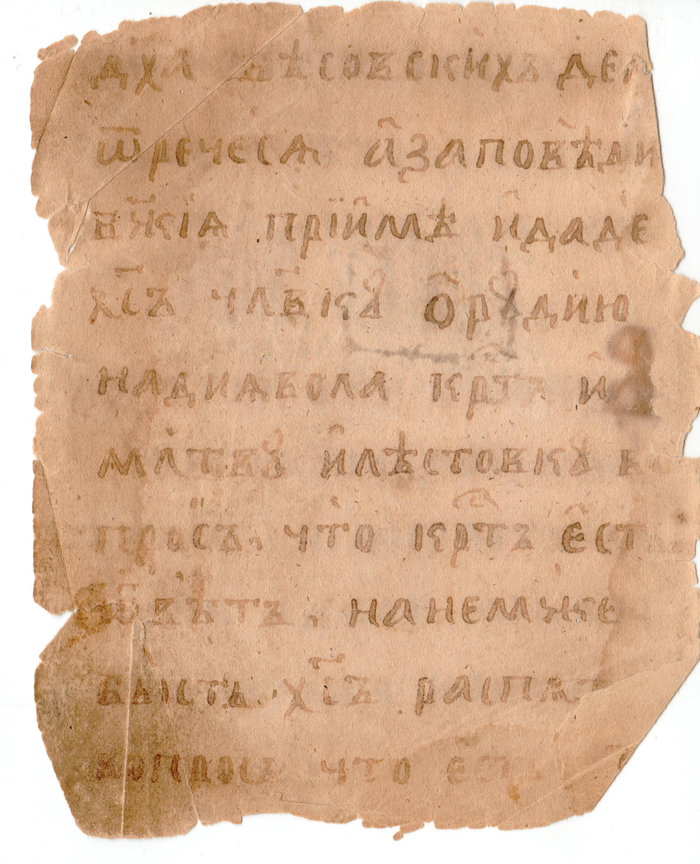 дха бѣсовскихъ дел
ѿречеся, а҆заповѣди
бж҃ія прїи҆мѣ и҆дадє
хс҃ъ чл҃вкꙋ ѻ҆рꙋдию
надиявола крт҃ъ и҆
мл҃твꙋ и҆лѣстовкꙋ в
просъ, что крт҃ъ є҆ст
ѿвѣтъ, нанемже
бысть хс҃ъ распят
вопросъ что є҆сть